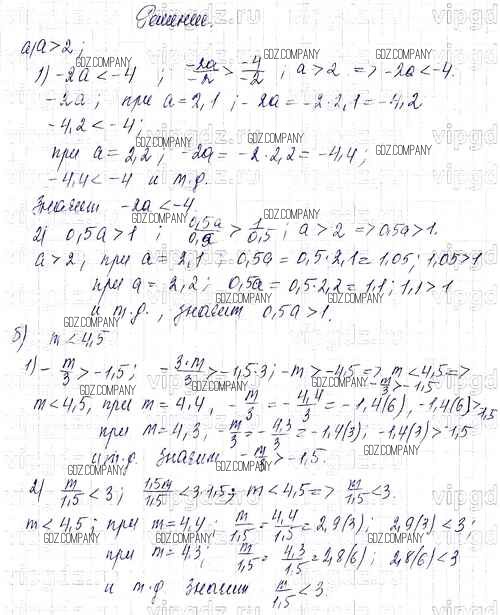 Решение.
а) a > 2;
1) -2a < -4 ; -2a/-2 > -4/-2 ; a > 2 => -2a < -4.
-2a ; при a = 2,1 ; -2a = -2·2,1 = -4,2
-4,2 < -4;
при a = 2,2 ; -2a = -2·2,2 = -4,4 ;
-4,4 < -4 и т.д.
Значит -2a < -4
2) 0,5a > 1 ; 0,5a/0,5 > 1/0,5 ; a > 2 => 0,5a > 1.
a > 2 ; при a = 2,1 ; 0,5a = 0,5·2,1 = 1,05; 1,05 > 1
при a = 2,2 ; 0,5a = 0,5·2,2 = 1,1; 1,1 > 1
и т.д., значит 0,5a > 1.
б) m < 4,5
1) - m/3 > -1,5 ; - 3·m/3 > -1,5·3 ; -m > -4,5 => m < 4,5 =>
- m/3 > -1,5
m < 4,5, при m = 4,4, - m/3 = - 4,4/3 = -1,4(6), -1,4(6) > -1,5
при m = 4,3, - m/3 = - 4,3/3 = -1,4(3); -1,4(3) > -1,5
и т.д. значит - m/3 > -1,5.
2) m/1,5 < 3 ; 1,5m/1,5 < 3·1,5 ; m < 4,5 => m/1,5 < 3.
m < 4,5 ; при m = 4,4 ; m/1,5 = 4,4/1,5 = 2,9(3) ; 2,9(3) < 3 ;
при m = 4,3 ; m/1,5 = 4,3/1,5 = 2,8(6) ; 2,8(6) < 3
и т.д значит m/1,5 < 3.
GDZ.COMPANY
vipgdz.ru